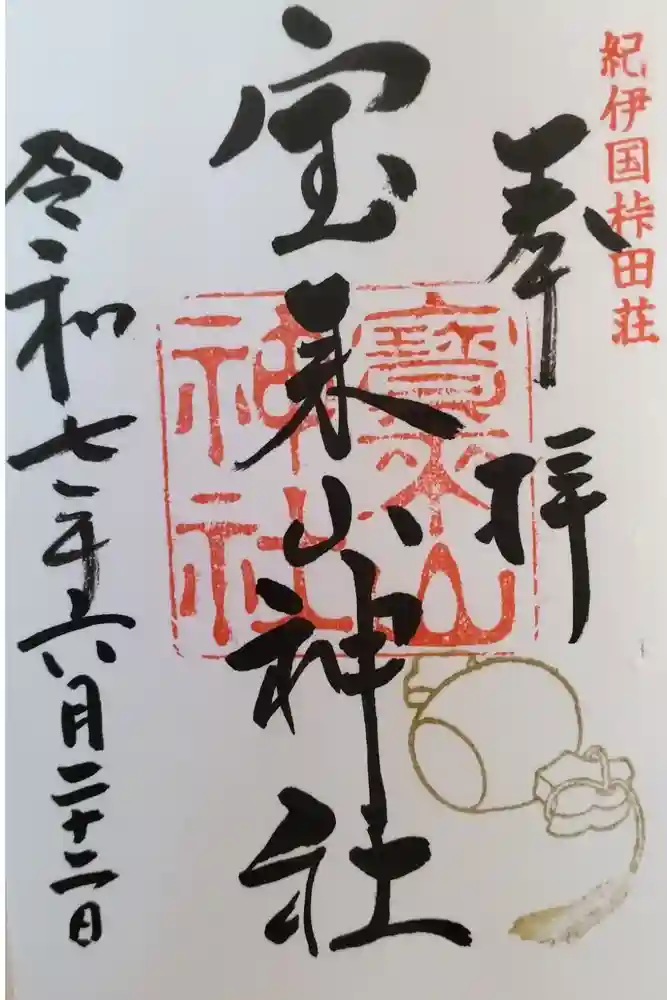 紀伊国桛田荘
奉拝
宝来山神社
寳来山
神社
令和七年六月二十二日